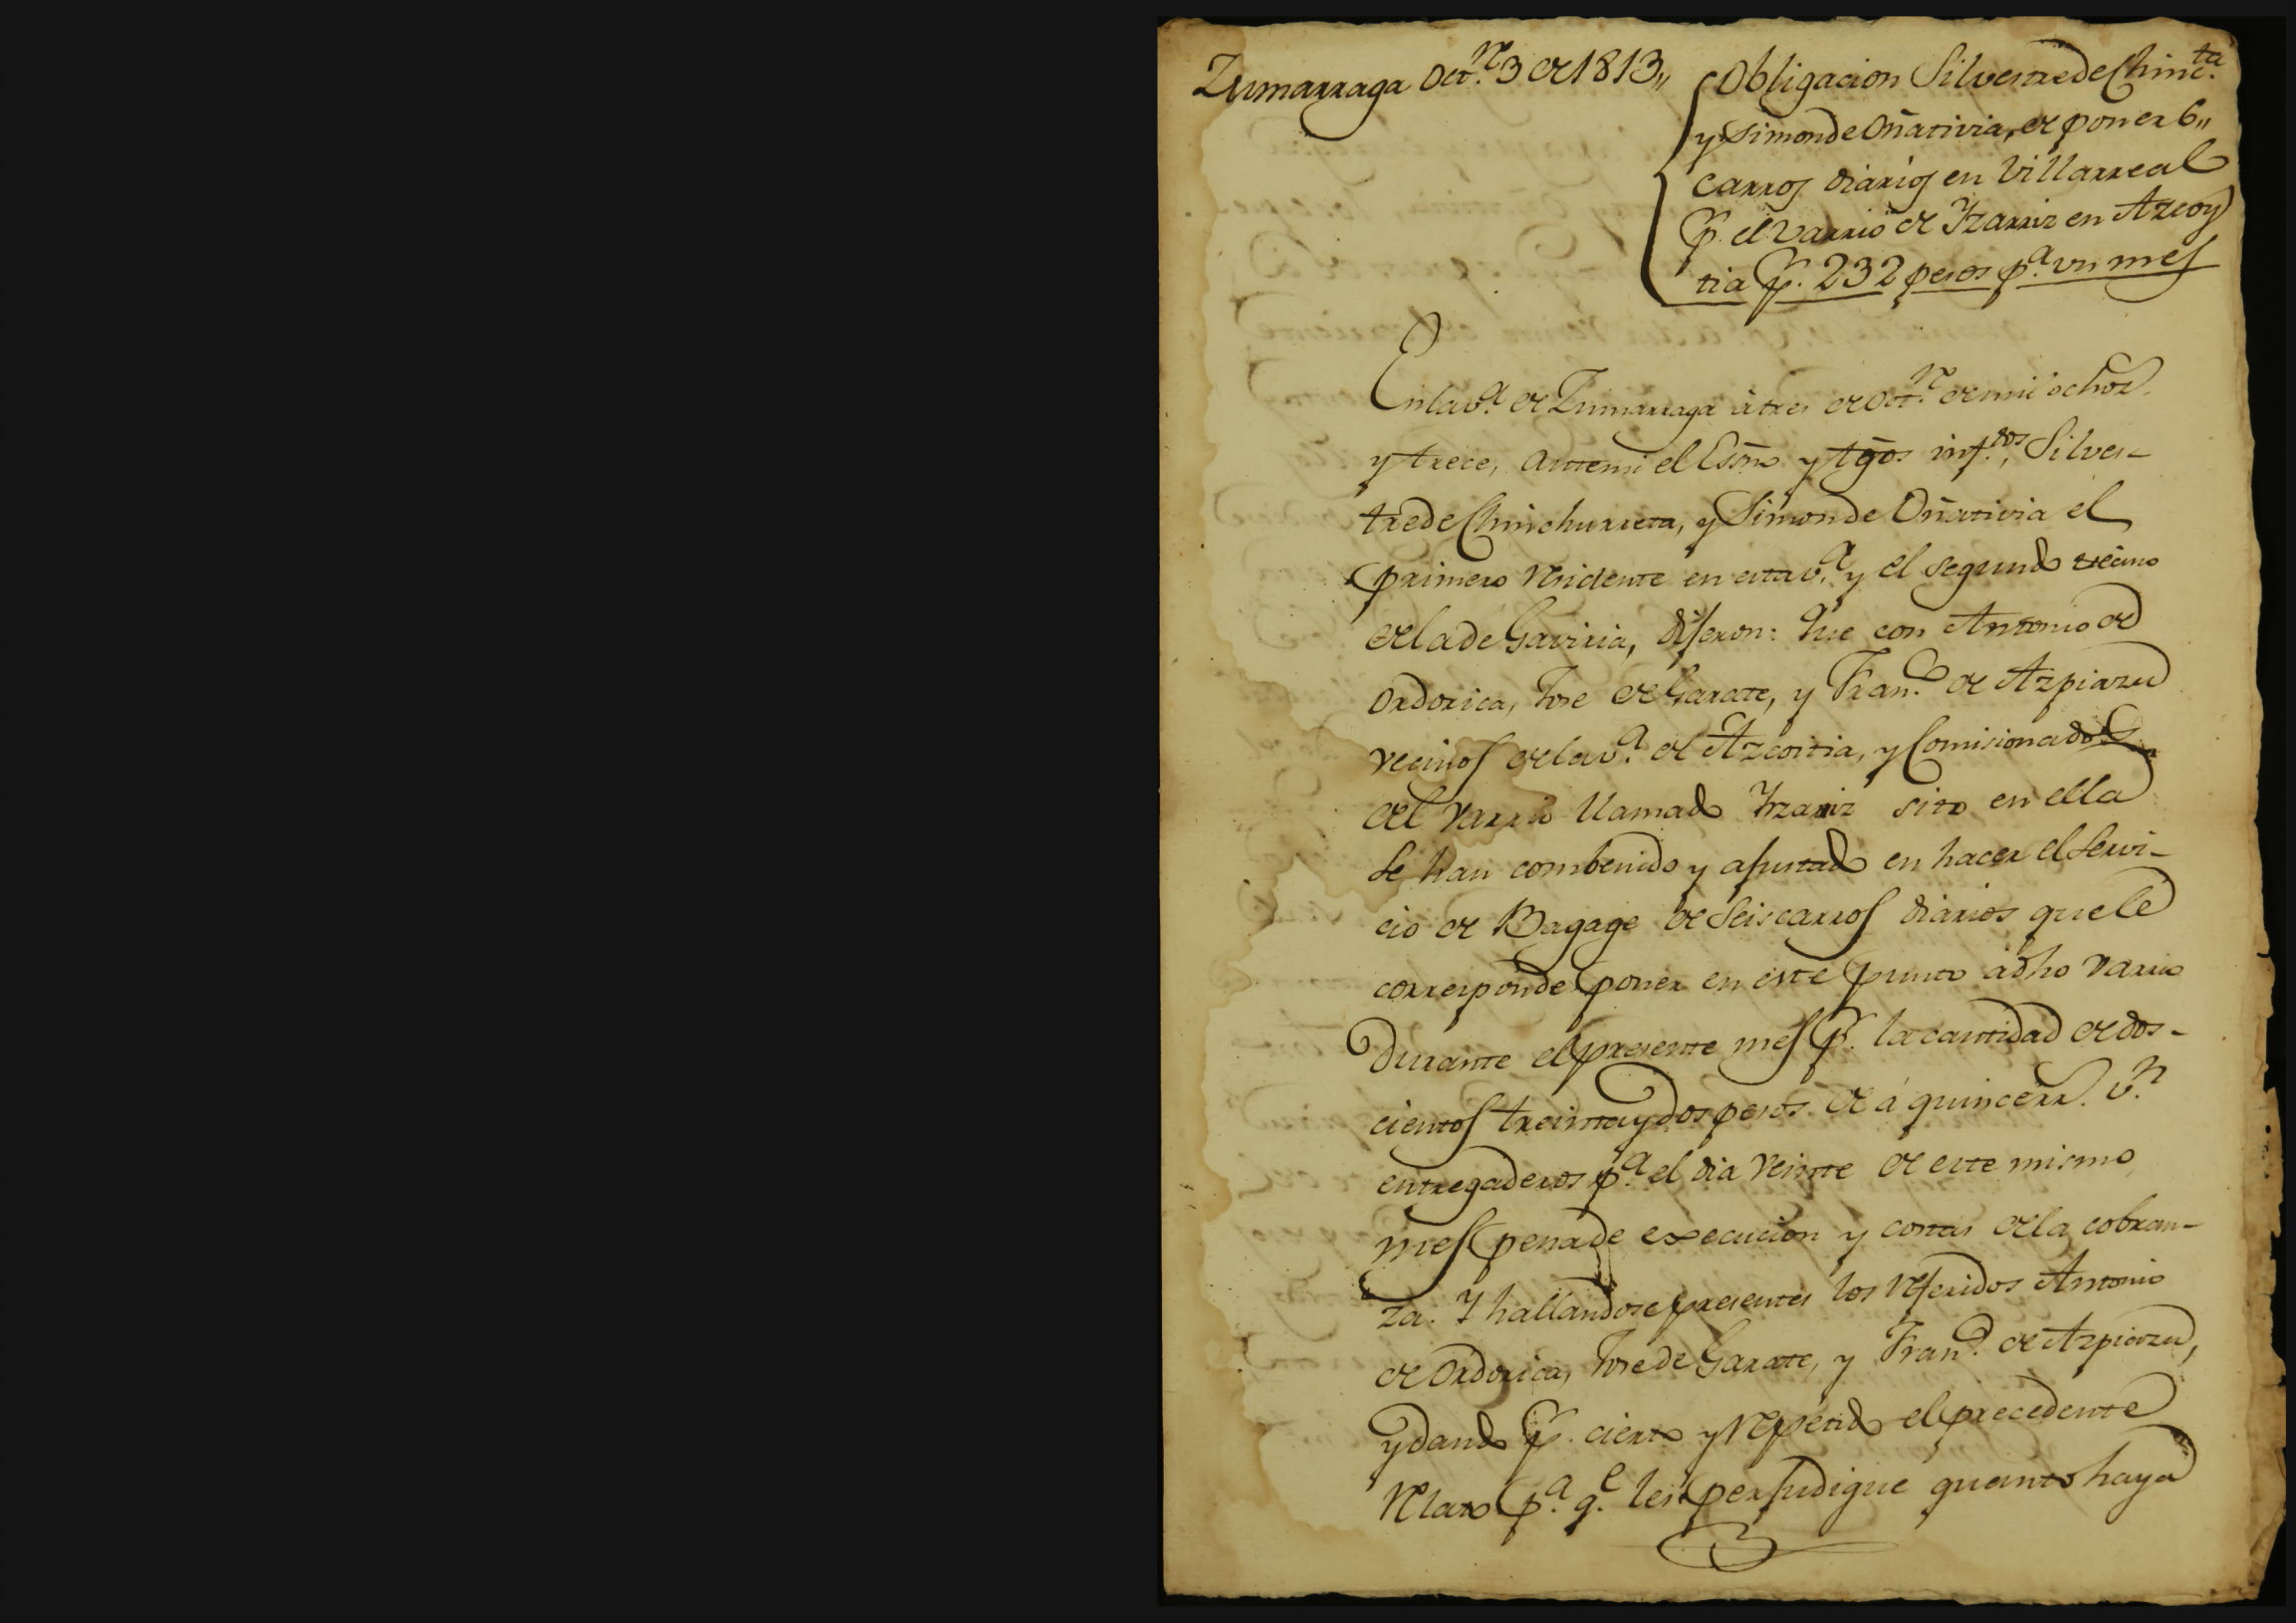 Zumarraga Oct.re 3 de 1813,,
Obligacion Silvestre de Chinc.ta
y Simon de Oñativia, de poner 6,,
carros diarios en Villarreal
pr. el varrio de Yzarriz en Azcoy
tia pr. 232 pesos p.a un mes
En la v.a de Zumarraga à tres de Oct.re de mil ochoz.
y trece, ante mi el Esño y tgos inf.tos, Silves-
tre de Chinchurreta, y Simon de Oñativia el
primero residente en esta v.a y el segundo vecino
de la de Gaviria, dijeron: Que con Antonio de
Ordorica, Jose de Garate, y Fran.co de Azpiazu
vecinos de la v.a de Azcoitia, y Comisionados
del varrio llamado Yzarriz sito en ella
se han combenido y ajustado en hacer el servi-
cio de Bagage de seis carros diarios que le
corresponde poner en este punto à dho varrio
durante el presente mes pr. la cantidad de dos-
cientos treinta y dos pesos de á quince rr. v.n
entregaderos p.a el dia veinte de este mismo
mes pena de execucion y costas de la cobran-
za. Y hallandose presentes los referidos Antonio
de Ordorica, Jose de Garate, y Fran.co de Azpiazu,
y dando pr. cierto y repetido el precedente
relato p.a q.e les perjudique quanto haya